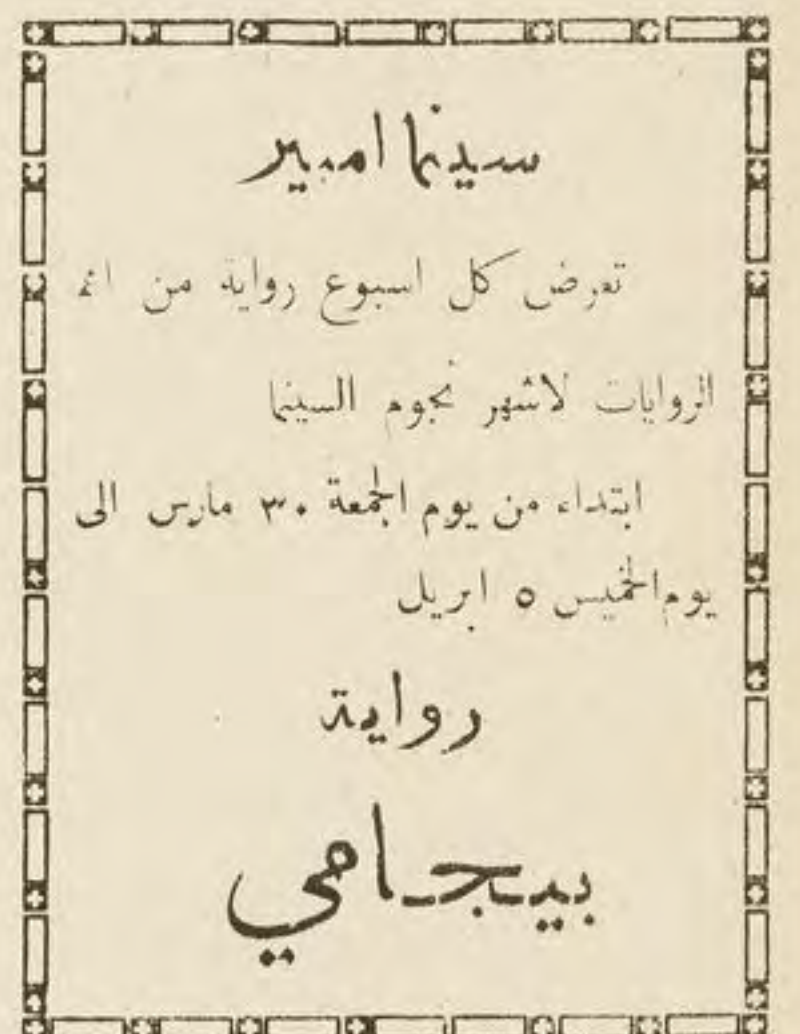 سينما امبير
تعرض كل اسبوع رواية من اهم
الروايات لاشهر نجوم السينما
ابتداء من يوم الجمعة ٣٠ مارس الى
يوم الخميس ٥ ابريل
رواية
بيجامي